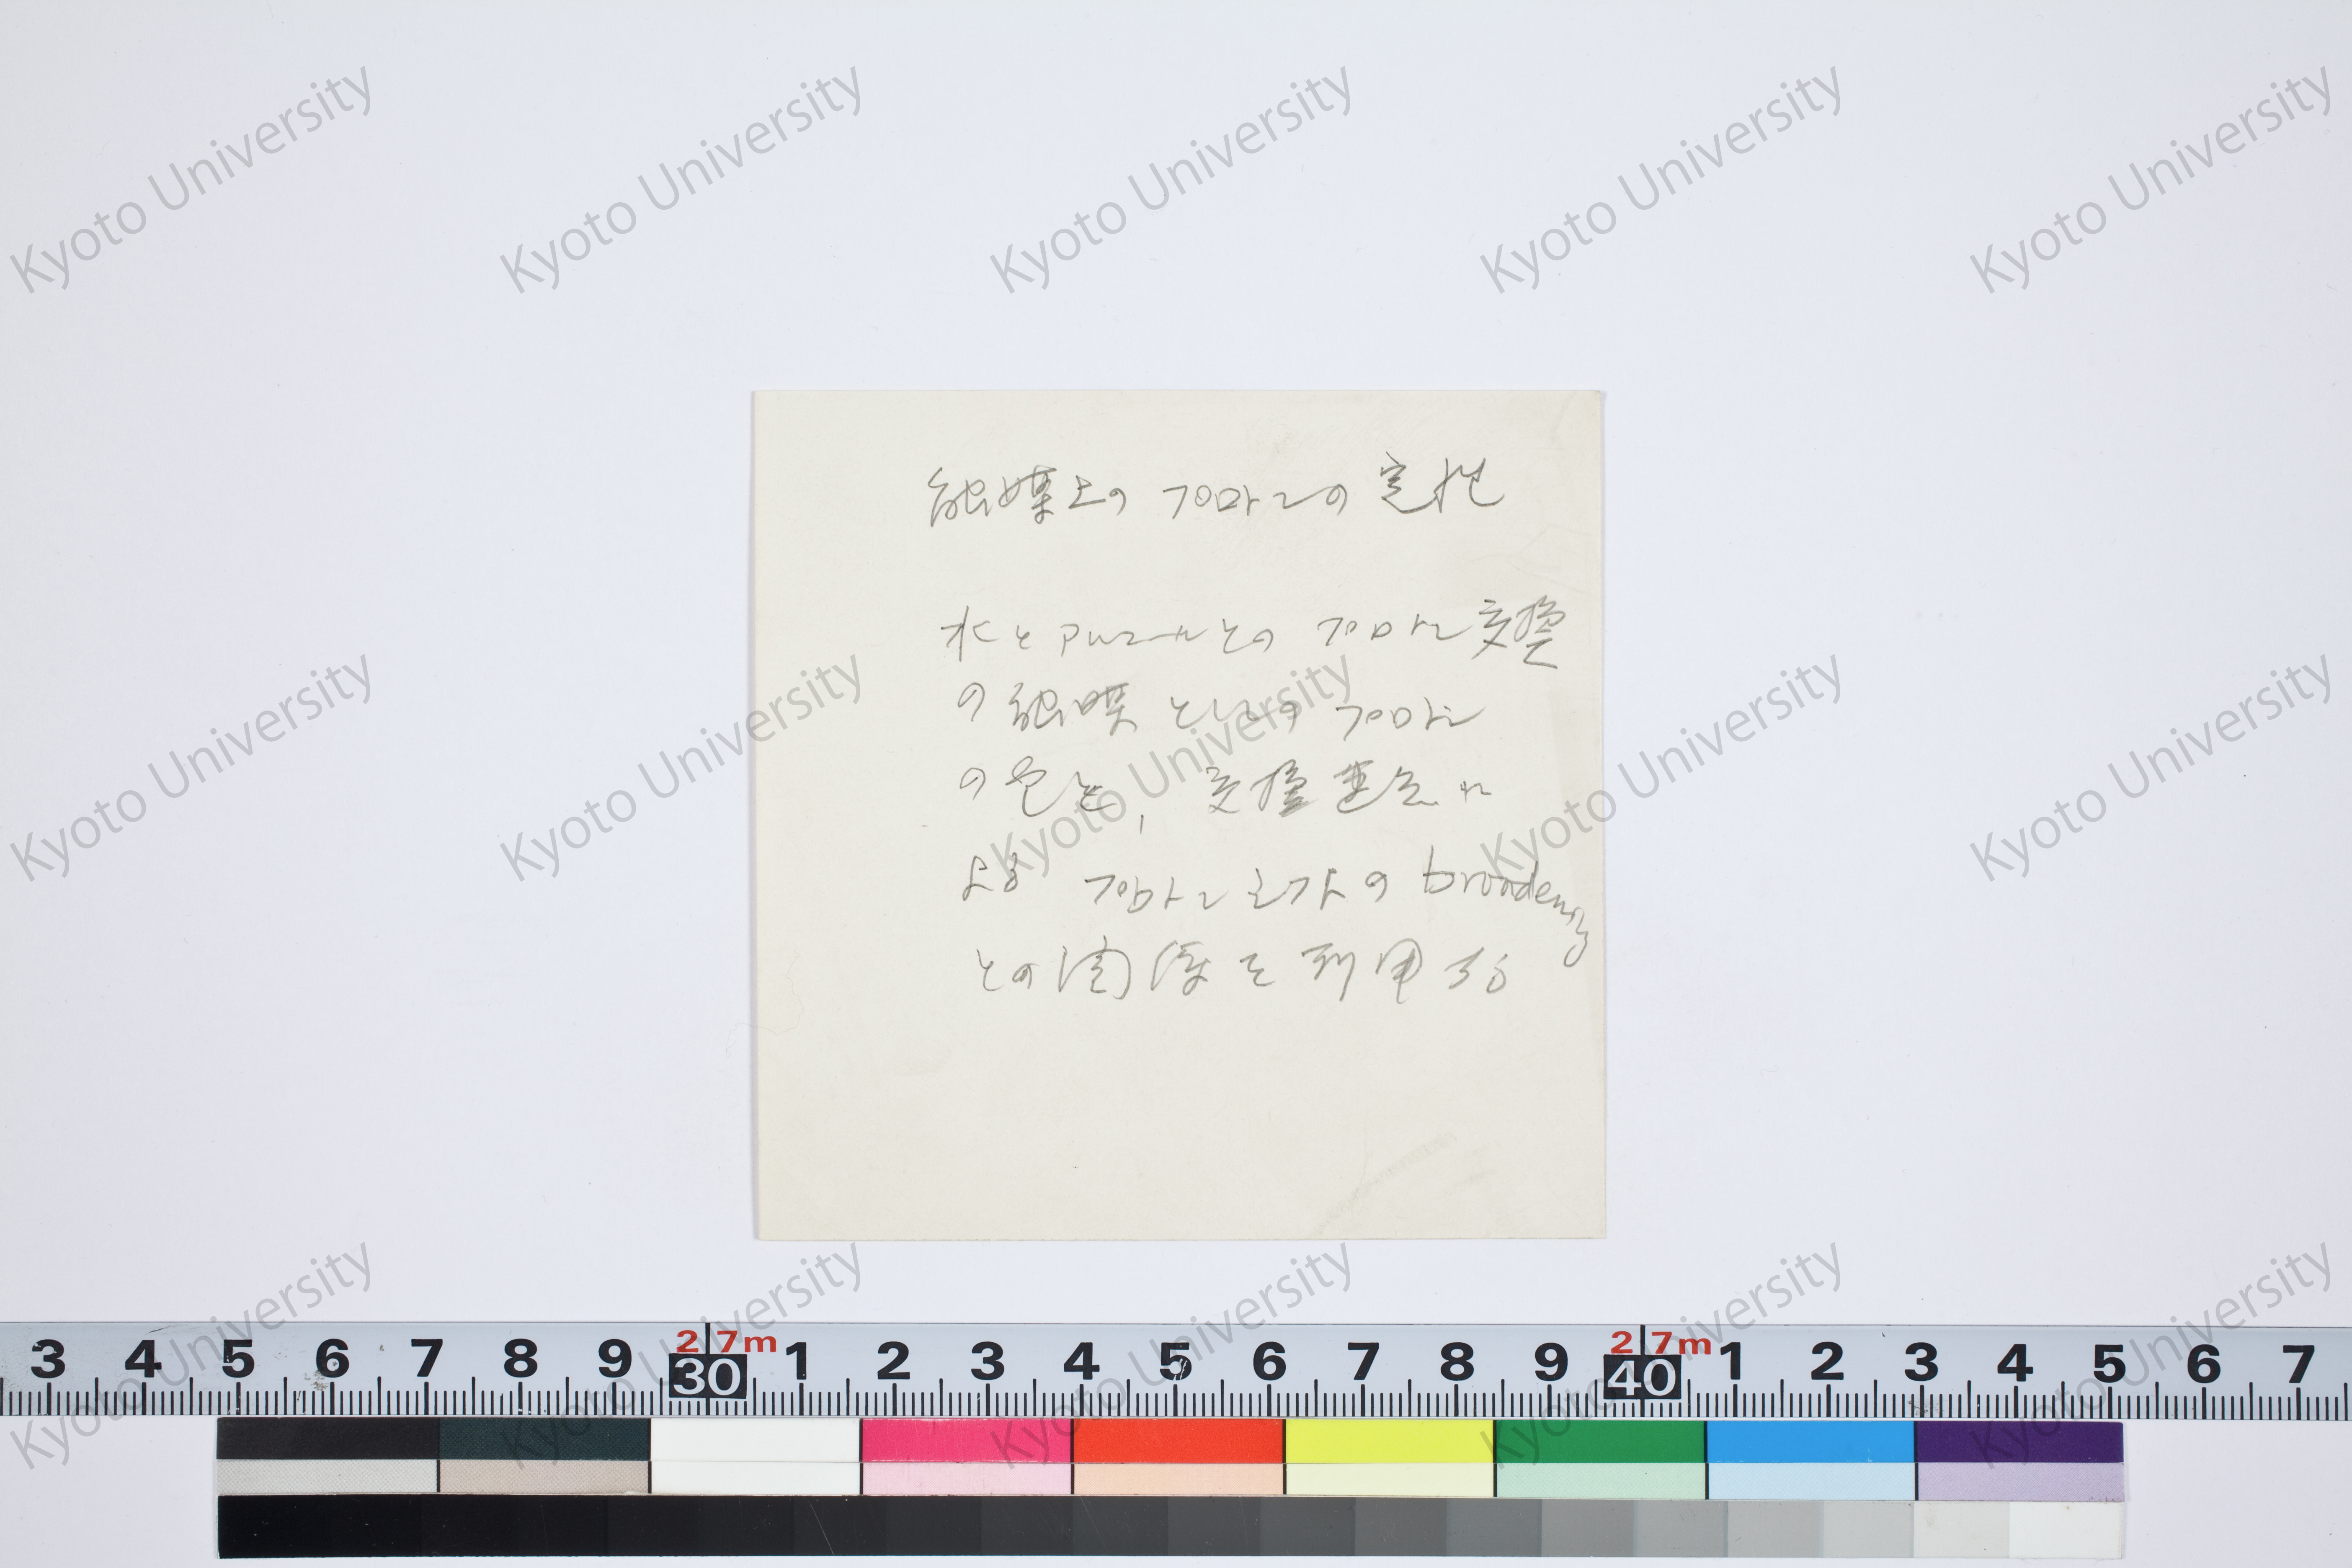 Kyoto University Kyoto University Kyoto University Kyoto University Kyoto University
触媒上のプロトンの定性
水とアルコールとのプロトン交換
の触媒としてのプロトン
の定量,交換速度に
よるプロトン シグナルの broadening
との関係を利用する
Kyoto University Kyoto University Kyoto University Kyoto University Kyoto University
Kyoto University Kyoto University Kyoto University Kyoto University Kyoto University
3 4 5 6 7 8 9 30 1 2 3 4 5 6 7 8 9 40 1 2 3 4 5 6 7
2 7m 2 7m